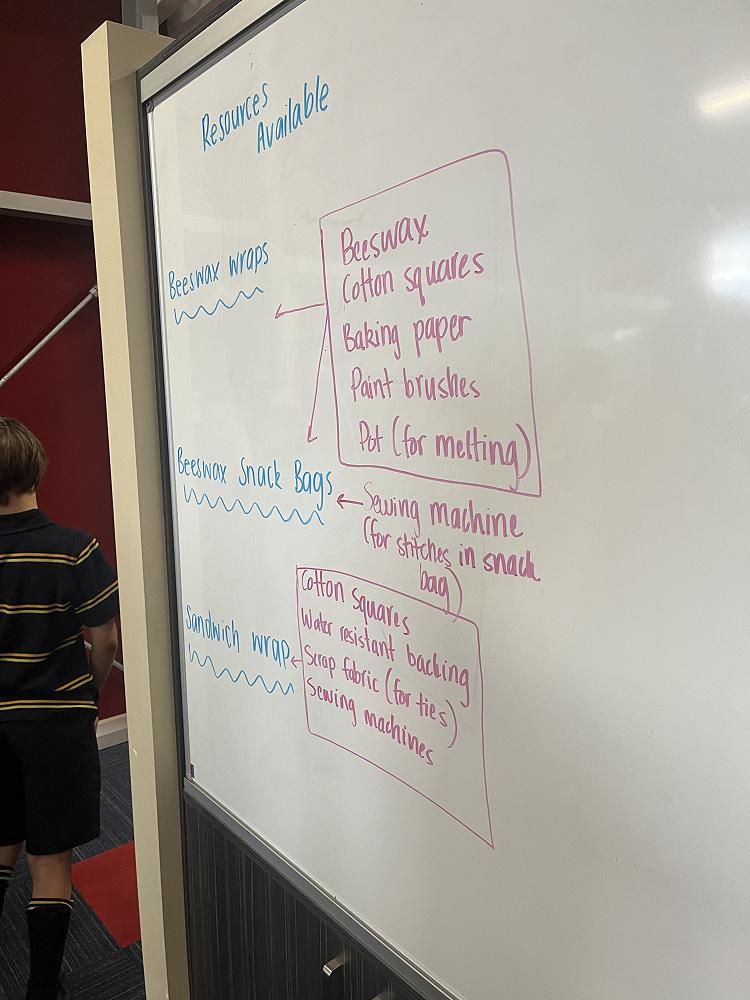 Resources
Available
Beeswax wraps
Beeswax
Cotton squares
Baking paper
Paint brushes
Pot (for melting)
Beeswax Snack Bags
Sewing machine
(for stitches in snack
bag)
Sandwich wrap
Cotton squares
Water resistant backing
Scrap fabric (for ties)
Sewing machines